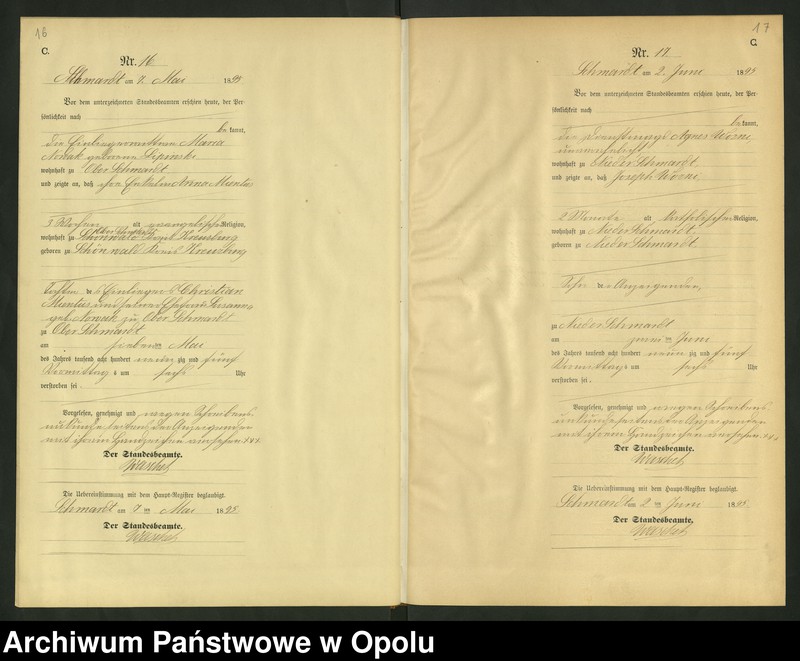 16
C.
Nr. 16
Schmardt am 7. Mai 1895
Vor dem unterzeichneten Standesbeamten erschien heute, der Per-
sönlichkeit nach
be kannt,
die Einliegerwittwe Maria
Nowak geborene
wohnhaft zu Ober Schmardt
und zeigte an, daß ihre Enkelin Anna Muntus
3 Wochen alt evangelischer Religion,
wohnhaft zu Ober Schmardt Kreuzburg
geboren zu Schönwald Kreis Kreuzburg
Tochter des Einliegers Christian
Muntus und seiner Ehefrau Susanna
geb. Nowak zu Ober Schmardt
zu Ober Schmardt
am sieben ten Mai
des Jahres tausend acht hundert neun zig und fünf
Vormittags um sechs Uhr
verstorben sei.
Vorgelesen, genehmigt und wegen Schreibens-
unkunde seitens der Anzeigenden
mit ihrem Handzeichen versehen +++
Der Standesbeamte.
Die Uebereinstimmung mit dem Haupt-Register beglaubigt.
Schmardt am 7 ten Mai 1895
Der Standesbeamte.
17
C.
Nr. 17.
Schmardt am 2. Juni 1895
Vor dem unterzeichneten Standesbeamten erschien heute, der Per-
sönlichkeit nach
be kannt,
die Agnes
unverehelicht
wohnhaft zu Nieder Schmardt
und zeigte an, daß Joseph
2 Monate alt katholischer Religion,
wohnhaft zu Nieder Schmardt
geboren zu Nieder Schmardt
Sohn der Anzeigenden,
zu Nieder Schmardt
am zwei ten Juni
des Jahres tausend acht hundert neun zig und fünf
Vormittags um sechs Uhr
verstorben sei.
Vorgelesen, genehmigt und wegen Schreibens-
unkunde seitens der Anzeigenden
mit ihrem Handzeichen versehen +++
Der Standesbeamte.
Die Uebereinstimmung mit dem Haupt-Register beglaubigt.
Schmardt am 2 ten Juni 1895
Der Standesbeamte.
Archiwum Państwowe w Opolu